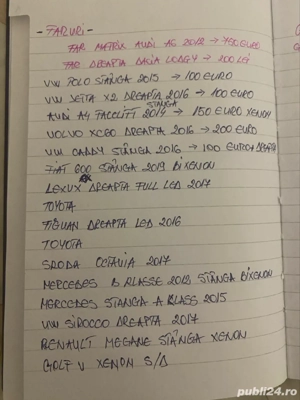 - FARURI -
FAR MATRIX AUDI A6 2018 → 750 EURO
FAR DREAPTA DACIA LODGY → 200 LEI
VW POLO STÂNGA 2015 → 100 EURO
VW JETTA X2 DREAPTA 2016 → 100 EURO
STÂNGA
AUDI A4 FACELIFT 2014 → 150 EURO XENON
VOLVO XC60 DREAPTA 2016 → 200 EURO
VW CADDY STÂNGA 2016 → 100 EURO + DREAPTA
FIAT 500 STÂNGA 2019 BIXENON
LEXUX DREAPTA FULL LED 2017
TOYOTA
TIGUAN DREAPTA LED 2016
TOYOTA
SKODA OCTAVIA 2017
MERCEDES B KLASSE 2012 STÂNGA BIXENON
MERCEDES STANGA A KLASS 2015
VW SIROCCO DREAPTA 2017
RENAULT MEGANE STÂNGA XENON
GOLF V XENON S/D
publi24.ro